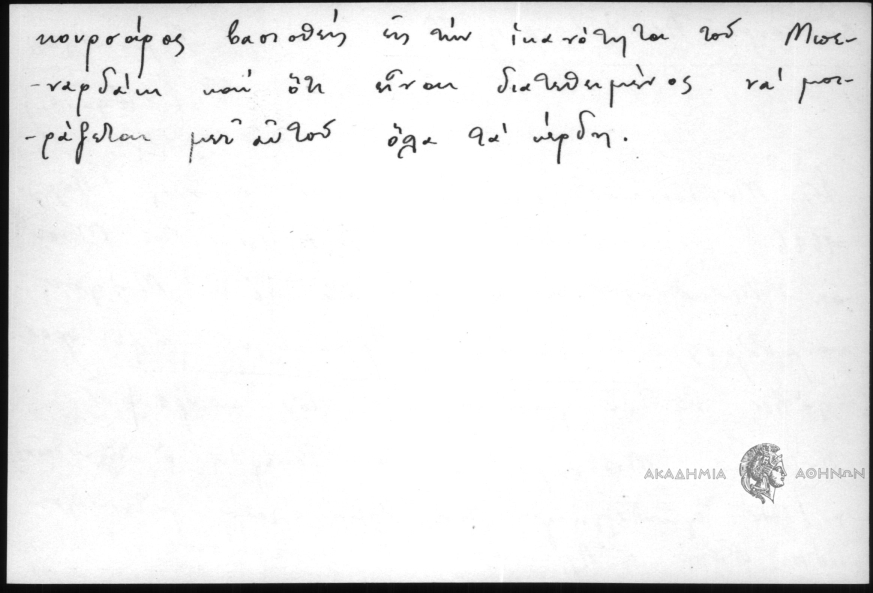 κουρσάρος βασισθείς εἰς τήν ἱκανότητα τοῦ Μπε-
-ναρδάκη καί ὅτι εἶναι διατεθειμένος νά μοι-
-ράζεται μετ' αὐτοῦ ὅλα τά κέρδη.
ΑΚΑΔΗΜΙΑ ΑΘΗΝΩΝ